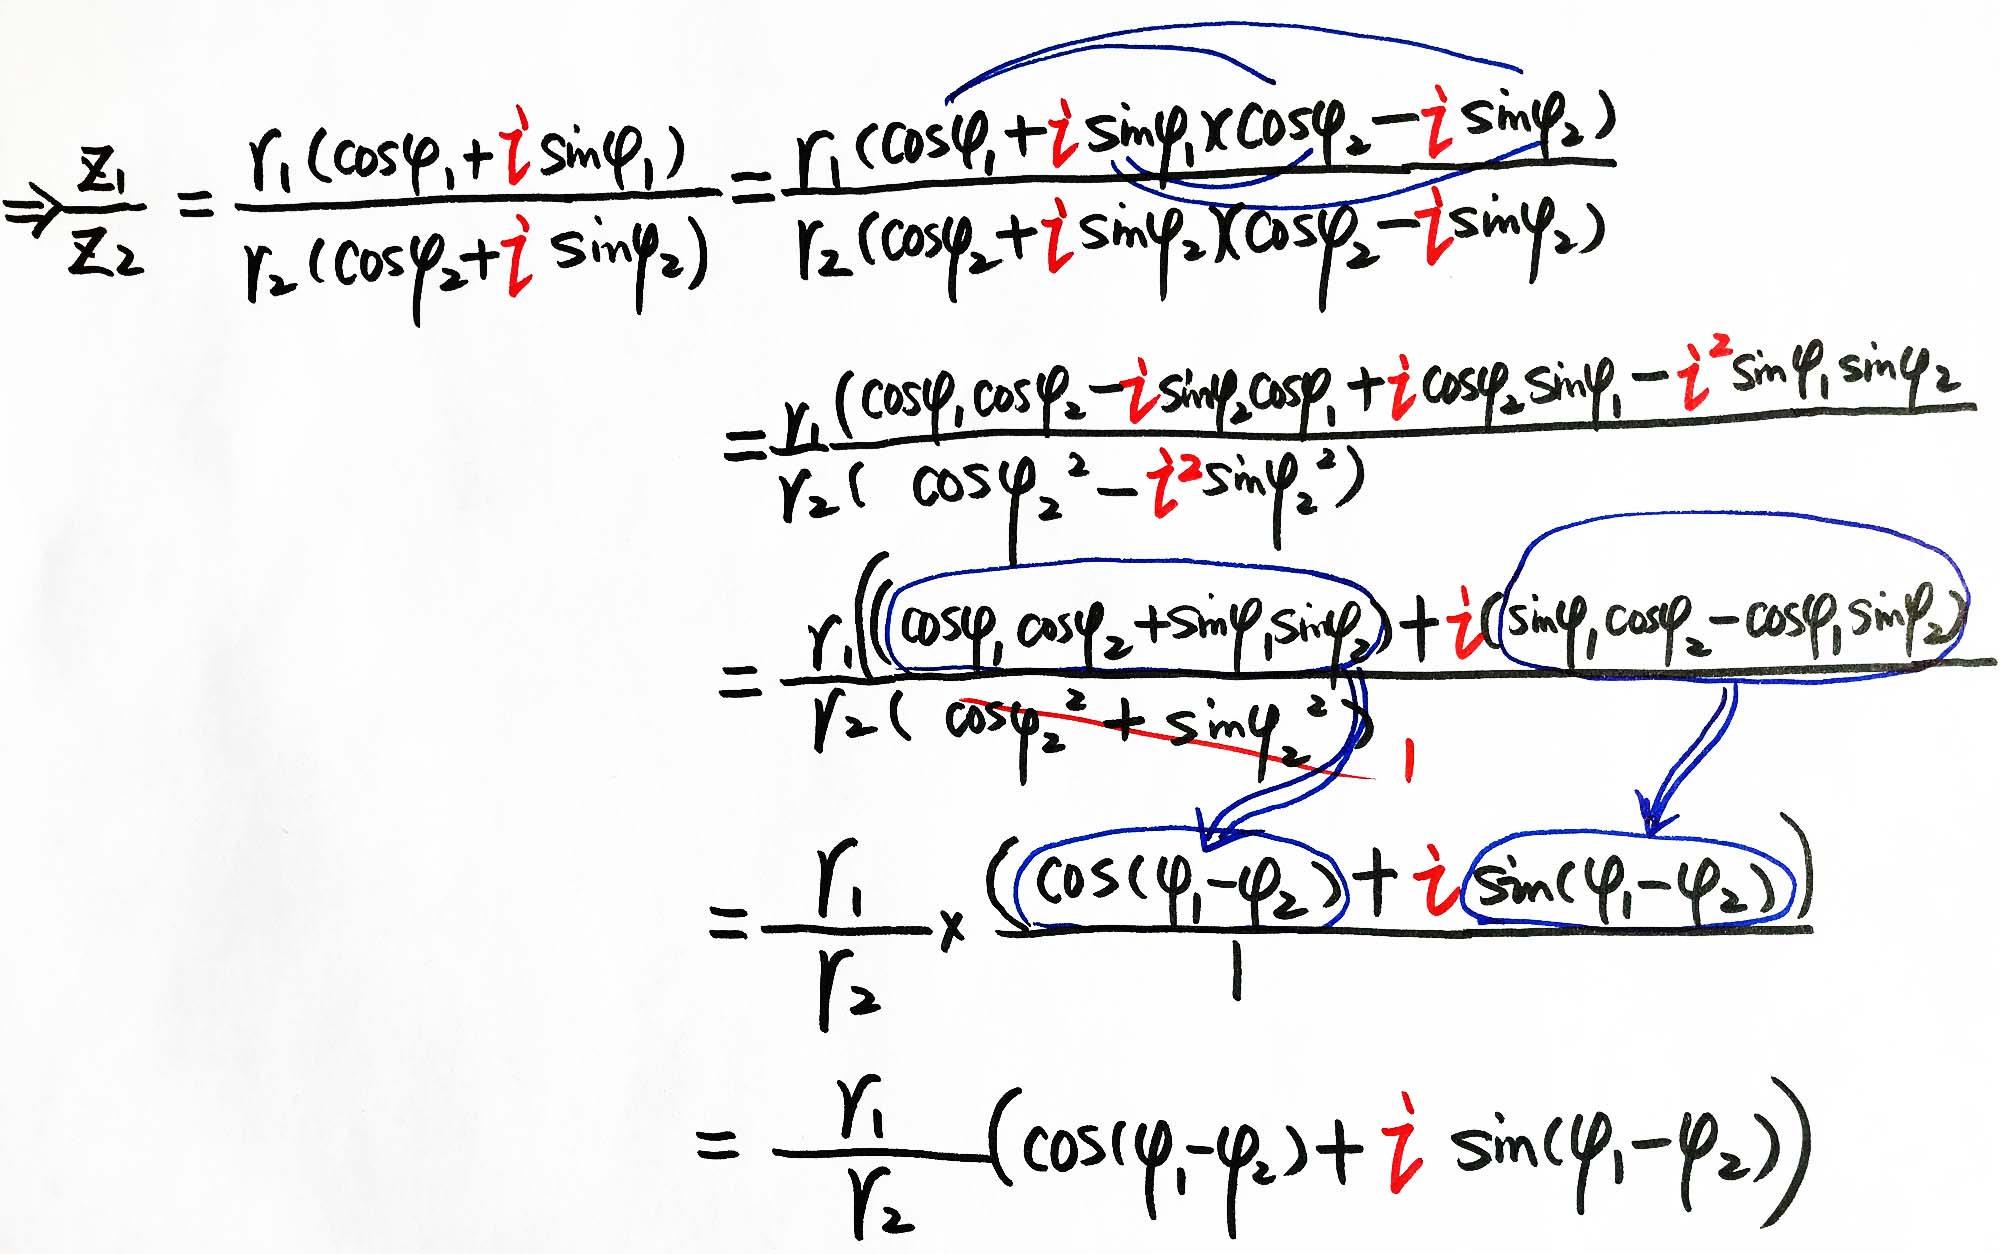 ⇒ z₁/z₂ = r₁(cosφ₁+i sinφ₁)/r₂(cosφ₂+i sinφ₂) = r₁(cosφ₁+i sinφ₁)(cosφ₂−i sinφ₂)/r₂(cosφ₂+i sinφ₂)(cosφ₂−i sinφ₂)
= r₁(cosφ₁cosφ₂−i sinφ₂cosφ₁+i cosφ₂sinφ₁−i²sinφ₁sinφ₂/r₂(cosφ₂²−i²sinφ₂²)
= r₁((cosφ₁cosφ₂+sinφ₁sinφ₂)+i(sinφ₁cosφ₂−cosφ₁sinφ₂)/r₂(cosφ₂²+sinφ₂²) 1
= r₁/r₂ × (cos(φ₁−φ₂)+i sin(φ₁−φ₂))/1
= r₁/r₂ (cos(φ₁−φ₂)+i sin(φ₁−φ₂))